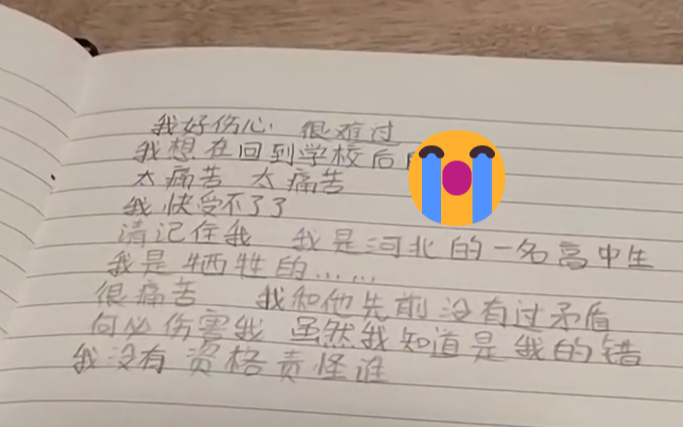 我好伤心 很难过
我想在回到学校后
太痛苦 太痛苦
我快受不了了
请记住我 我是河北的一名高中生
我是牺牲的……
很痛苦 我和他先前没有过矛盾
何必伤害我 虽然我知道是我的错
我没有资格责怪谁